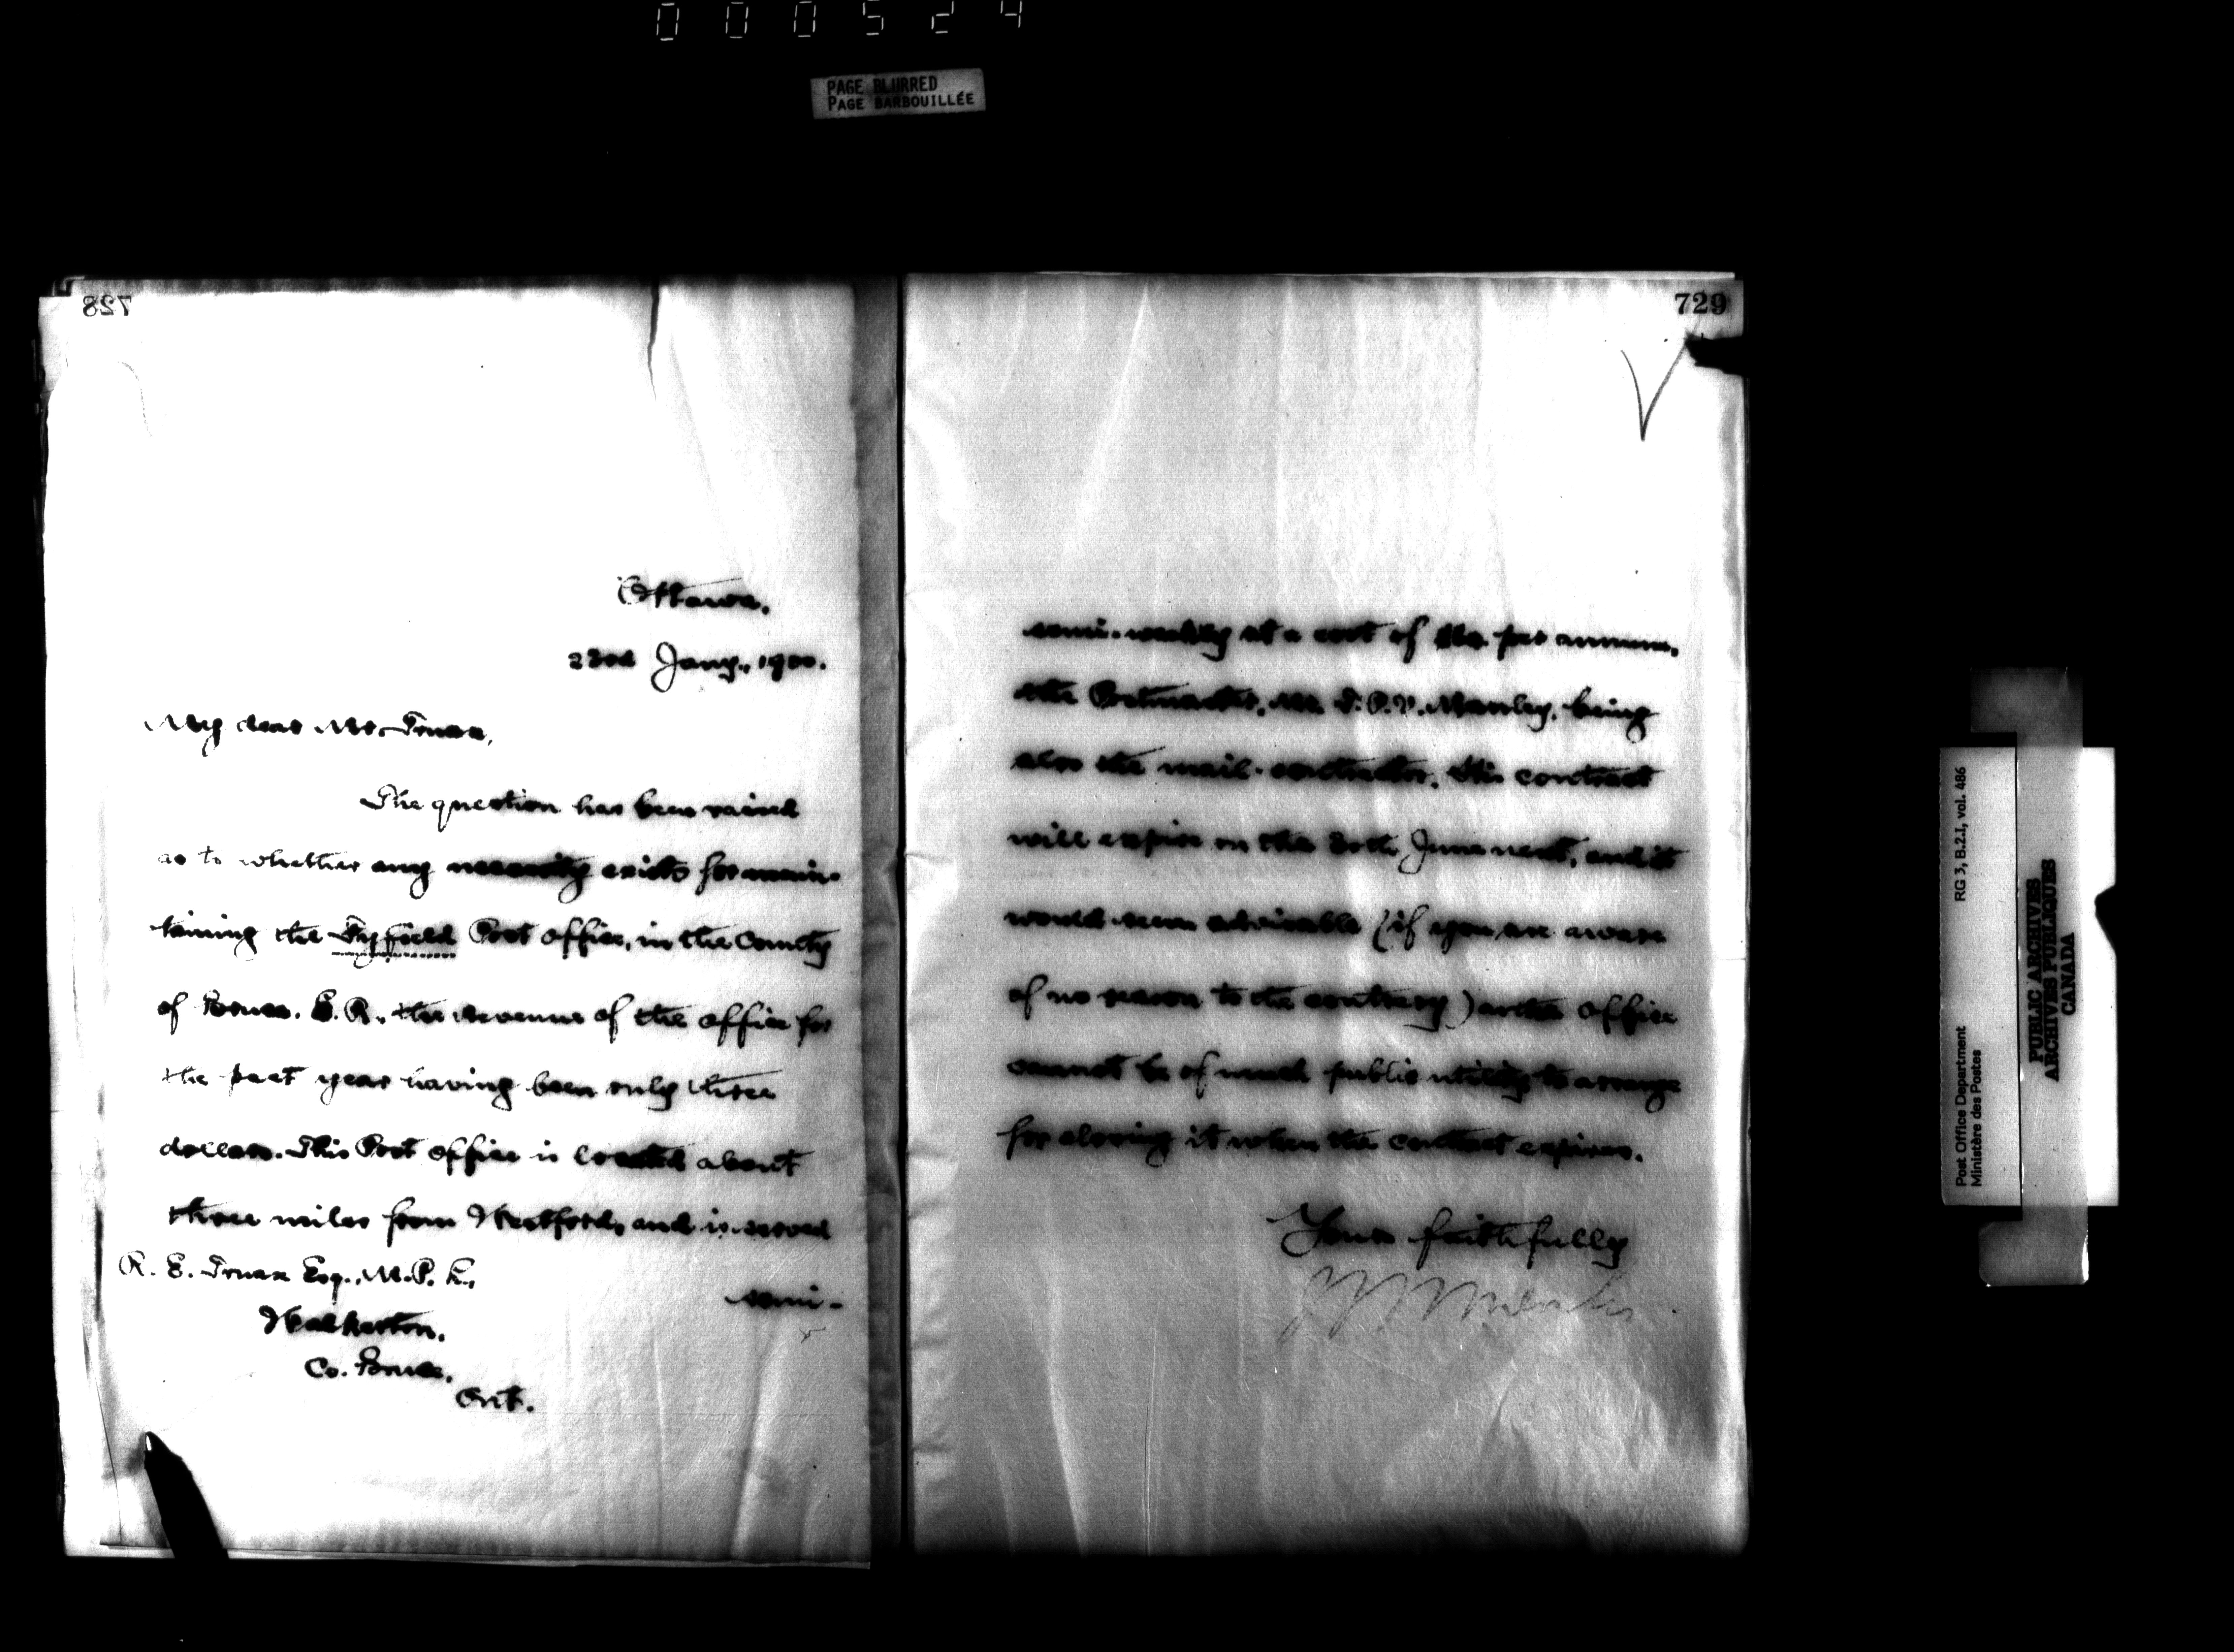 000524
PAGE BLURRED
PAGE BARBOUILLÉE
728
Ottawa,
Jany., 1900.
My dear Mr. Truax,
The question has been raised
as to whether any necessity exists for main-
taining the Post Office, in the County
of Bruce, E. R., the revenue of the office for
the past year having been only three
dollars. This Post Office is located about
three miles from Westford, and is served
R. E. Truax Esq., M.P.
semi-
Walkerton,
Co. Bruce,
Ont.
729
semi-weekly at a cost of per annum,
the Postmaster, Mr. being
also the mail-contractor. His contract
will expire on the 30th June next, and it
would seem advisable (if you are aware
of no reason to the contrary) as the office
cannot be of much public utility to arrange
for closing it when the contract expires.
Yours faithfully
Post Office Department
Ministère des Postes
RG 3, B.2.I, vol. 486
PUBLIC ARCHIVES
ARCHIVES PUBLIQUES
CANADA